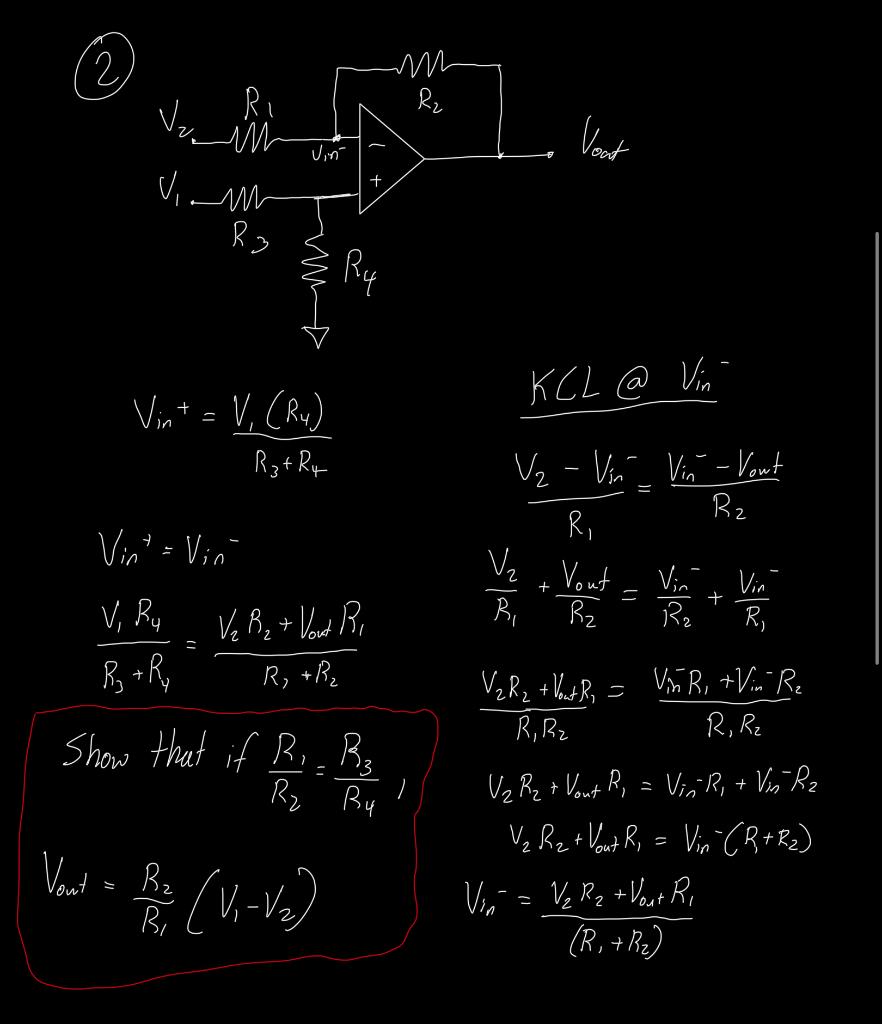 2
R₂
R₁
V₂
Vin⁻
−
Vout
V₁
+
R₃
R₄
Vin⁺ = V₁(R₄) / R₃+R₄
Vin⁺ = Vin⁻
V₁R₄ / R₃+R₄ = V₂R₂+VoutR₁ / R₁+R₂
Show that if R₁/R₂ = R₃/R₄,
Vout = R₂/R₁ (V₁-V₂)
KCL @ Vin⁻
V₂ - Vin⁻ / R₁ = Vin⁻ - Vout / R₂
V₂/R₁ + Vout/R₂ = Vin⁻/R₂ + Vin⁻/R₁
V₂R₂+VoutR₁ / R₁R₂ = Vin⁻R₁+Vin⁻R₂ / R₁R₂
V₂R₂+VoutR₁ = Vin⁻R₁+Vin⁻R₂
V₂R₂+VoutR₁ = Vin⁻(R₁+R₂)
Vin⁻ = V₂R₂+VoutR₁ / (R₁+R₂)